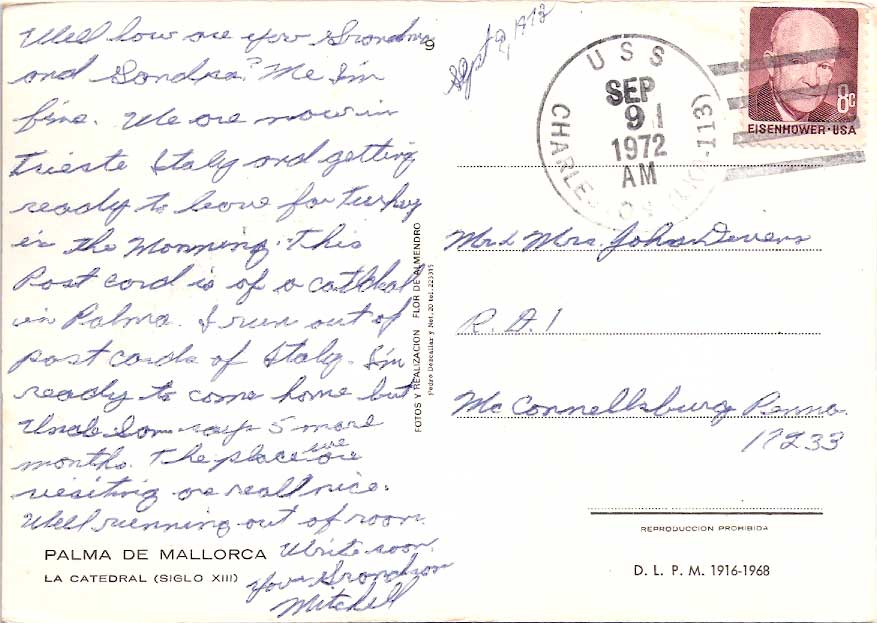 Sept 9, 1972
Well how are you Grandma
and Sandra? Me I'm
fine. We are now in
Trieste Italy and getting
ready to leave for Turkey
in the Morning. This
Post card is of a
in Palma. I run out of
post cards of Italy. I'm
ready to come home but
Uncle Sam says 5 more
months. The place we are
visiting are reall nice.
Well running out of room.
Write soon.
Your Grandson
Mitchell
PALMA DE MALLORCA
LA CATEDRAL (SIGLO XIII)
9
FOTOS Y REALIZACION FLOR DE ALMENDRO
Pedro Descallar y Net, 20 tel. 223315
USS
CHARLESTON (LKA-113)
SEP
9
1972
AM
8c
EISENHOWER·USA
Mr & Mrs. John Devers
R.D.1
Mc Connellsburg Penna.
17233
REPRODUCCION PROHIBIDA
D. L. P. M. 1916-1968